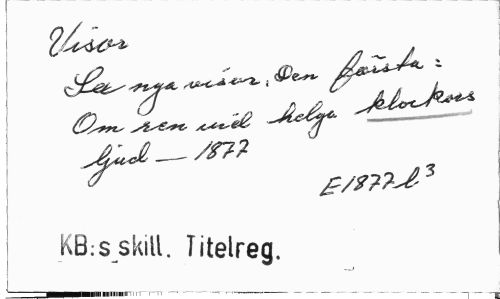 Visor
Sex nya visor. Den första:
Om ren vid helga klockors
ljud — 1877
E1877 l³
KB:s skill. Titelreg.